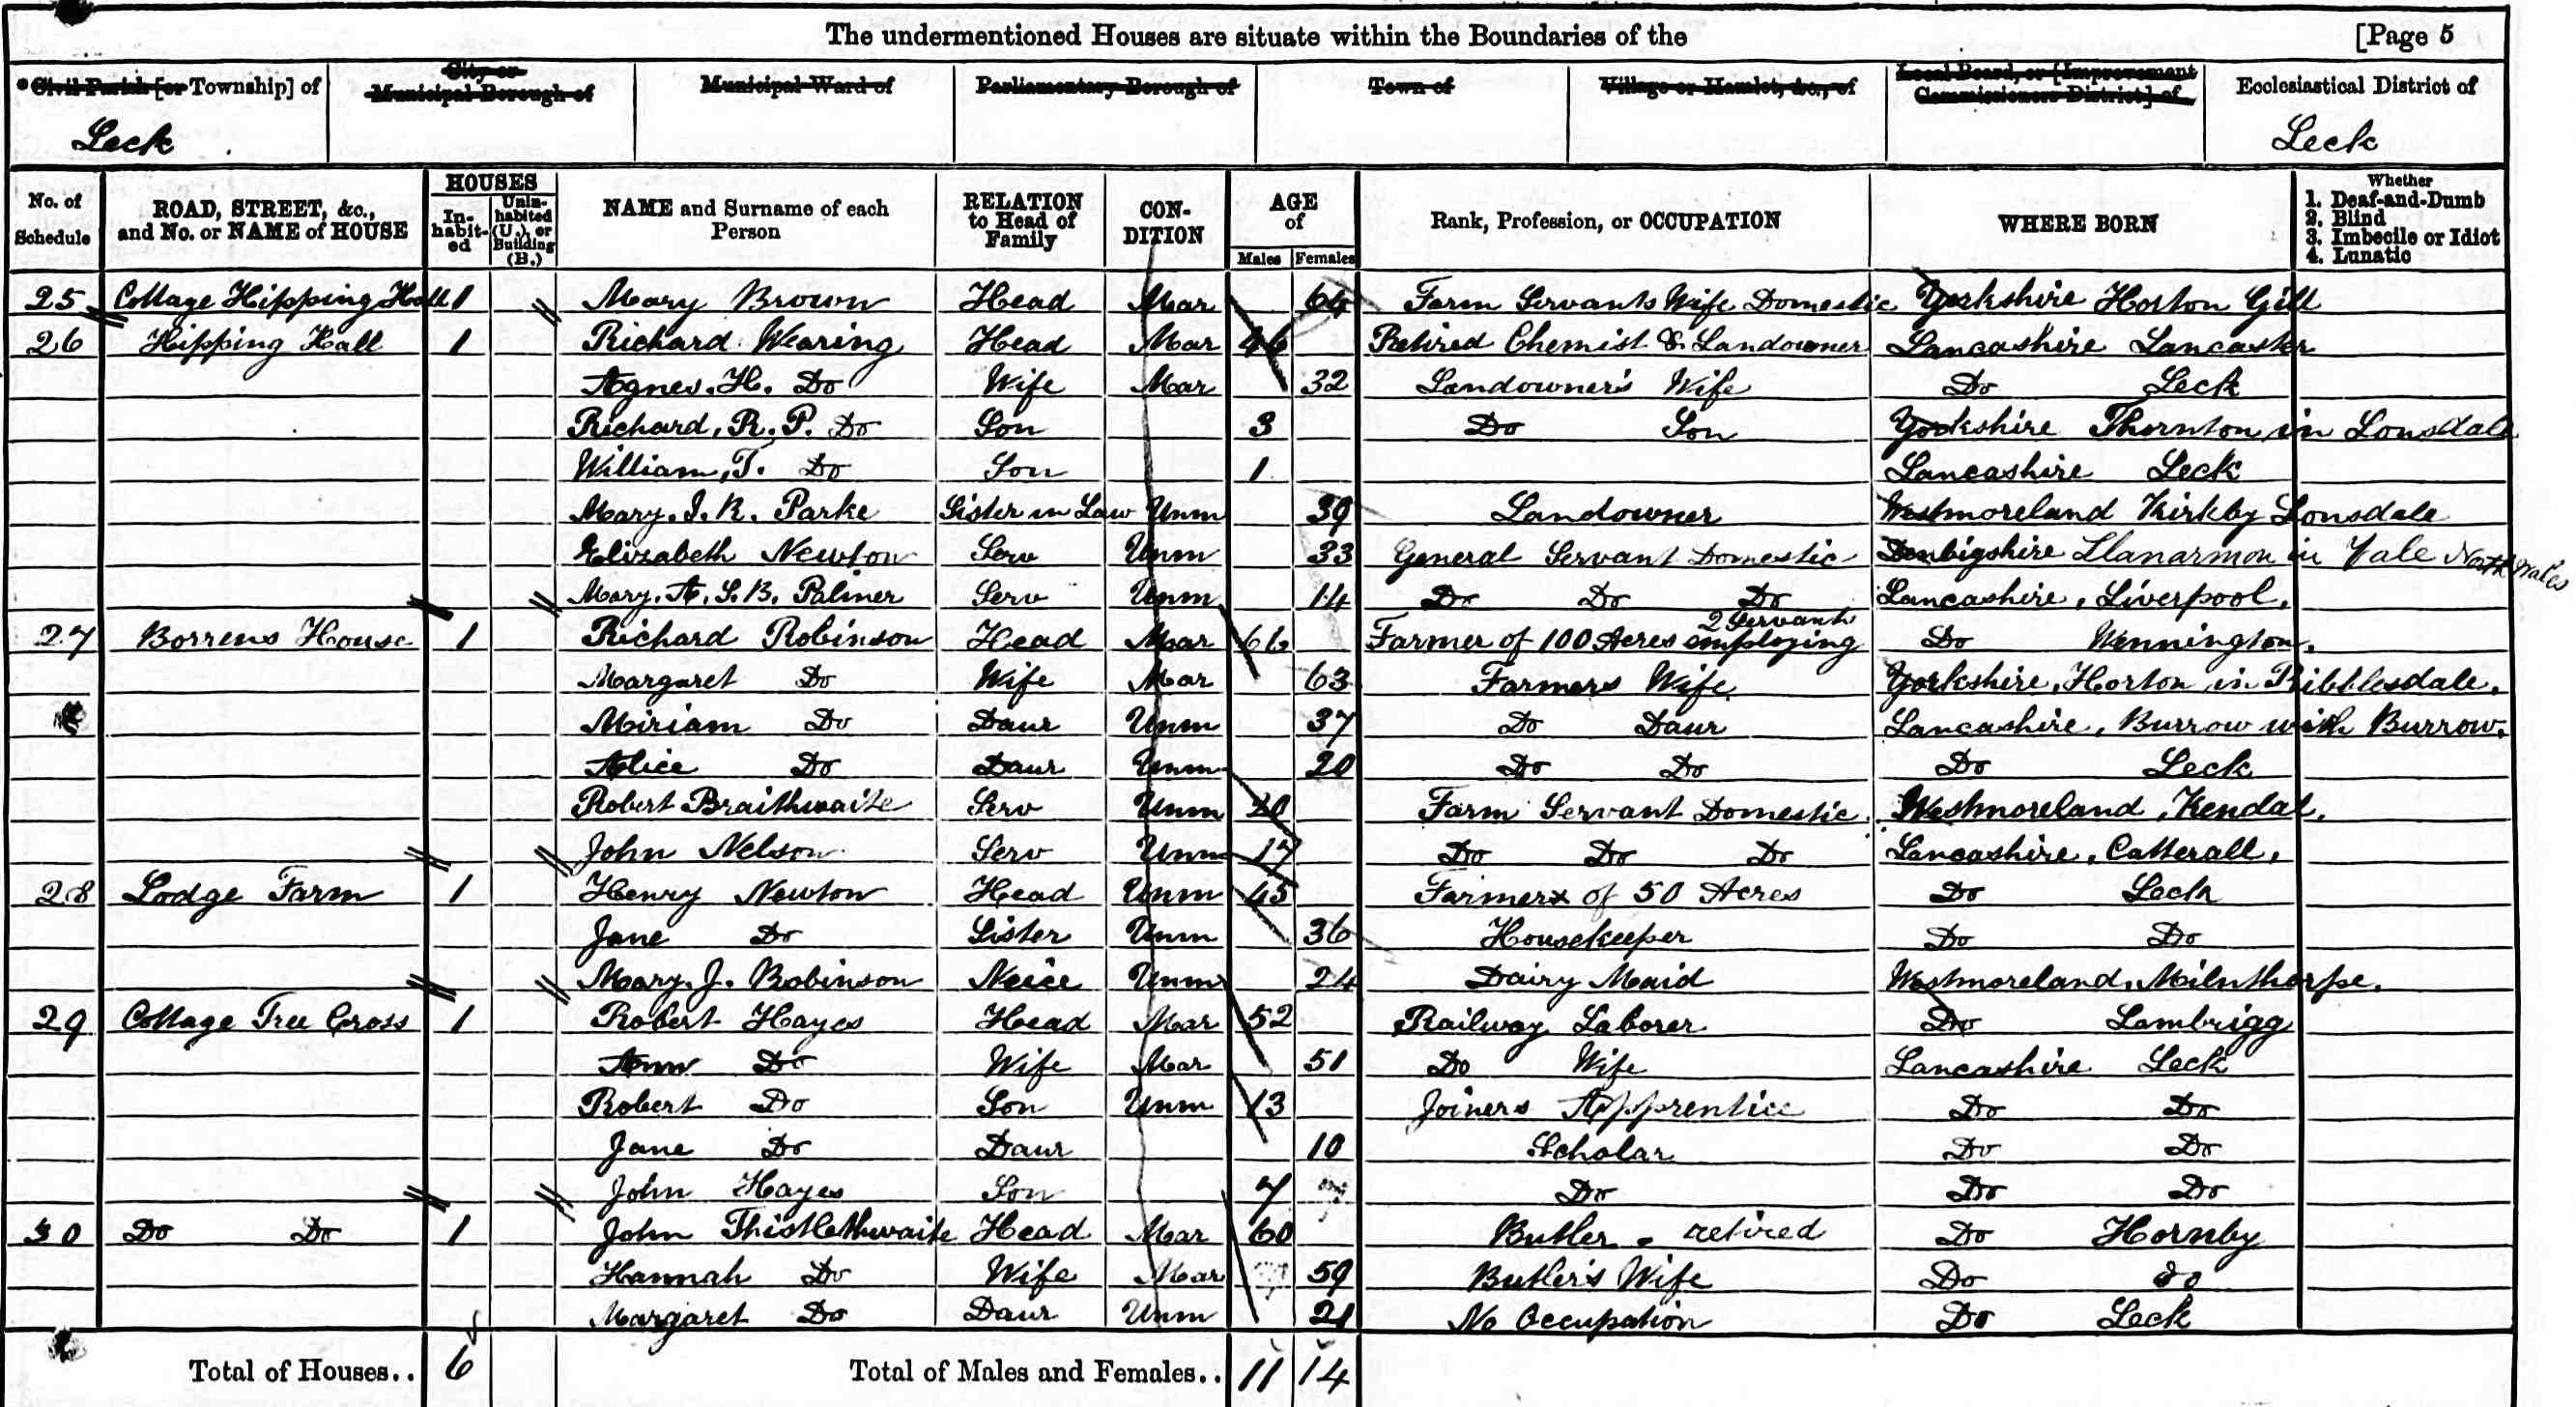 The undermentioned Houses are situate within the Boundaries of the [Page 5
Civil Parish [or Township] of City or Municipal Borough of Municipal Ward of Parliamentary Borough of Town of Village or Hamlet, &c., of Local Board, or [Improvement Commissioners District] of Ecclesiastical District of
Leck Leck
No. of Schedule ROAD, STREET, &c., and No. or NAME of HOUSE HOUSES In-habit-ed Unin-habited (U.), or Building (B.) NAME and Surname of each Person RELATION to Head of Family CON-DITION AGE of Males Females Rank, Profession, or OCCUPATION WHERE BORN Whether 1. Deaf-and-Dumb 2. Blind 3. Imbecile or Idiot 4. Lunatic
25 Cottage Hipping Hall 1 Mary Brown Head Mar 64 Farm Servants Wife Domestic Yorkshire Horton Gill
26 Hipping Hall 1 Richard Wearing Head Mar 46 Retired Chemist & Landowner Lancashire Lancaster
Agnes. H. Do Wife Mar 32 Landowner's Wife Do Leck
Richard, R. P. Do Son 3 Do Son Yorkshire Thornton in Lonsdale
William, T. Do Son 1 Lancashire Leck
Mary. I. R. Parke Sister in Law Unm 39 Landowner Westmoreland Kirkby Lonsdale
Elizabeth Newton Serv Unm 33 General Servant Domestic Denbigshire Llanarmon in Yale North Wales
Mary. A. S. B. Palmer Serv Unm 14 Do Do Do Lancashire, Liverpool.
27 Borrens House 1 Richard Robinson Head Mar 66 Farmer of 100 Acres employing 2 Servants Do Wennington.
Margaret Do Wife Mar 63 Farmers Wife Yorkshire, Horton in Ribblesdale.
Miriam Do Daur Unm 37 Do Daur Lancashire, Burrow with Burrow.
Alice Do Daur Unm 20 Do Do Do Leck
Robert Braithwaite Serv Unm 20 Farm Servant Domestic. Westmoreland, Kendal.
John Nelson Serv Unm 17 Do Do Do Lancashire, Catterall.
28 Lodge Farm 1 Henry Newton Head Unm 45 Farmer of 50 Acres Do Leck
Jane Do Sister Unm 36 Housekeeper Do Do
Mary. J. Robinson Neice Unm 24 Dairy Maid Westmoreland, Milnthorpe.
29 Cottage Tree Cross 1 Robert Hayes Head Mar 52 Railway Laborer Do Lambrigg
Ann Do Wife Mar 51 Do Wife Lancashire Leck
Robert Do Son Unm 13 Joiners Apprentice Do Do
Jane Do Daur 10 Scholar Do Do
John Hayes Son 7 Do Do Do
30 Do Do 1 John Thistlethwaite Head Mar 60 Butler - retired Do Hornby
Hannah Do Wife Mar 59 Butler's Wife Do do
Margaret Do Daur Unm 21 No Occupation Do Leck
Total of Houses.. 6 Total of Males and Females.. 11 14